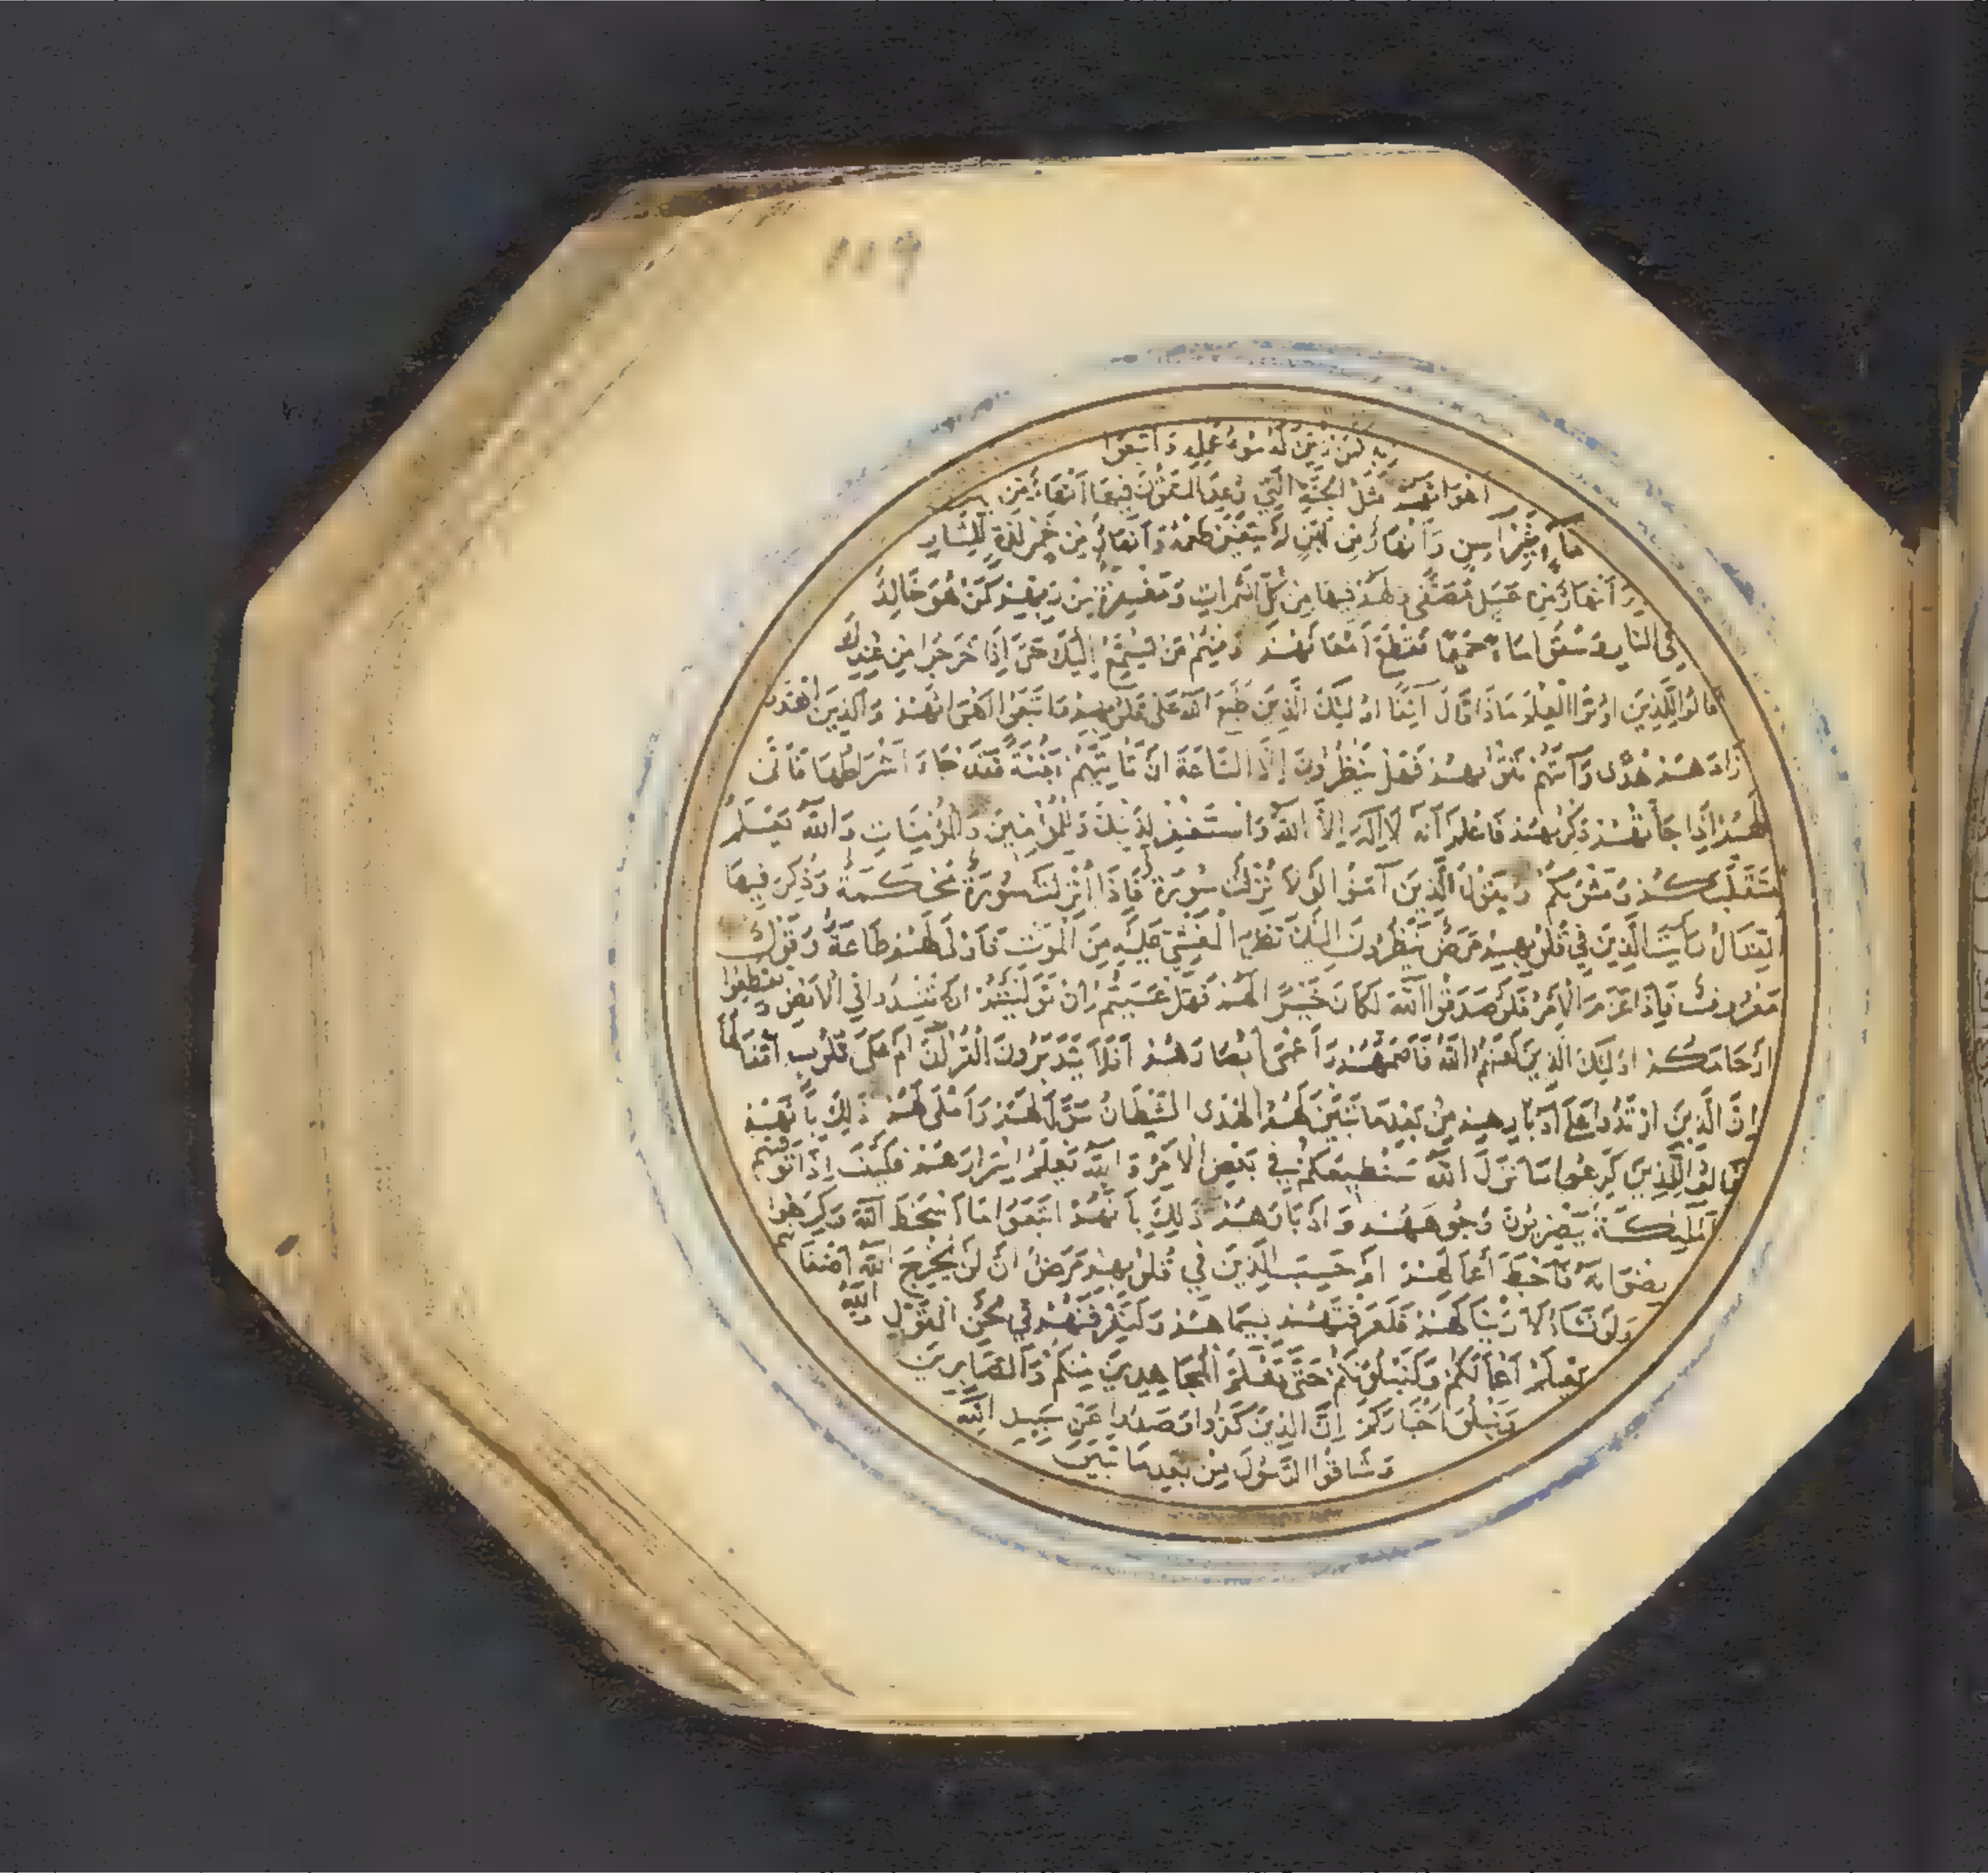 109
ربه كمن زين له سوء عمله واتبعوا
أهواءهم مثل الجنة التي وعد المتقون فيها أنهار من
ماء غير آسن وأنهار من لبن لم يتغير طعمه وأنهار من خمر لذة للشار
بين وأنهار من عسل مصفى ولهم فيها من كل الثمرات ومغفرة من ربهم كمن هو خالد
في النار وسقوا ماء حميما فقطع أمعاءهم ومنهم من يستمع إليك حتى إذا خرجوا من عندك
قالوا للذين أوتوا العلم ماذا قال آنفا أولئك الذين طبع الله على قلوبهم واتبعوا أهواءهم والذين اهتدوا
زادهم هدى وآتيهم تقواهم فهل ينظرون إلا الساعة أن تأتيهم بغتة فقد جاء أشراطها فأنى
لهم إذا جاءتهم ذكراهم فاعلم أنه لا إله إلا الله واستغفر لذنبك وللمؤمنين والمؤمنات والله يعلم
متقلبكم ومثويكم ويقول الذين آمنوا لولا نزلت سورة فإذا أنزلت سورة محكمة وذكر فيها
القتال رأيت الذين في قلوبهم مرض ينظرون إليك نظر المغشي عليه من الموت فأولى لهم طاعة وقول
معروف فإذا عزم الأمر فلو صدقوا الله لكان خيرا لهم فهل عسيتم إن توليتم أن تفسدوا في الأرض وتقطعوا
أرحامكم أولئك الذين لعنهم الله فأصمهم وأعمى أبصارهم أفلا يتدبرون القرآن أم على قلوب أقفالها
إن الذين ارتدوا على أدبارهم من بعد ما تبين لهم الهدى الشيطان سول لهم وأملى لهم ذلك بأنهم
قالوا للذين كرهوا ما نزل الله سنطيعكم في بعض الأمر والله يعلم إسرارهم فكيف إذا توفتهم
الملئكة يضربون وجوههم وأدبارهم ذلك بأنهم اتبعوا ما أسخط الله وكرهوا
رضوانه فأحبط أعمالهم أم حسب الذين في قلوبهم مرض أن لن يخرج الله أضغانهم
ولو نشاء لأريناكهم فلعرفتهم بسيماهم ولتعرفنهم في لحن القول والله
يعلم أعمالكم ولنبلونكم حتى نعلم المجاهدين منكم والصابرين
ونبلو أخباركم إن الذين كفروا وصدوا عن سبيل الله
وشاقوا الرسول من بعد ما تبين